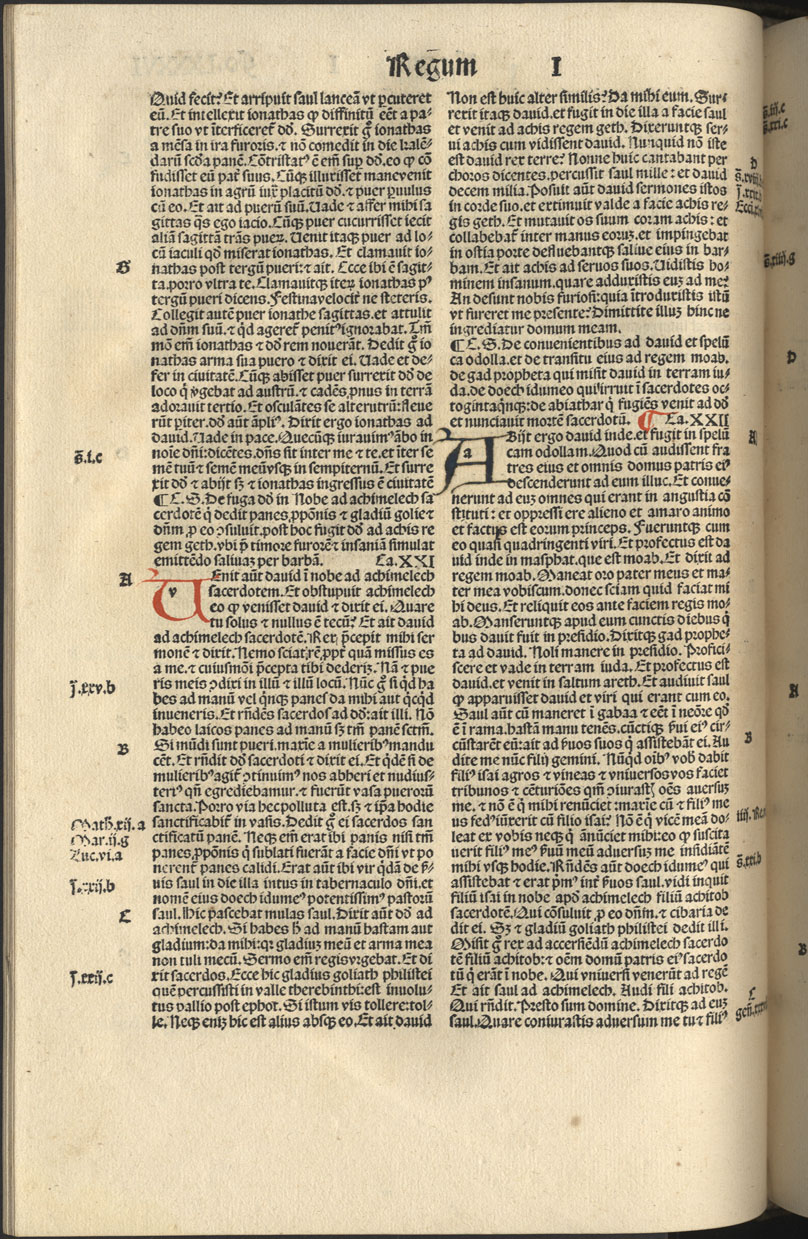 Regum I
Quid fecit? Et arripuit saul lanceā vt ꝑcuteret
eū. Et intellexit ionathas ꝙ diffinitū eēt a pa-
tre suo vt īterficeret̄ dd̄. Surrexit gͦ ionathas
a mēsa in ira furoris. ⁊ nō comedit in die kalē-
darū scd̄a panē. Cōtristatꝰ ē em̄ suꝑ dd̄. eo ꝙ cō
fudisset eū pat̄ suus. Cūqꝫ illuxisset mane venit
ionathas in agrū iux̄ placitū dd̄. ⁊ puer ꝑuulus
cū eo. Et ait ad puerū suū. Uade ⁊ affer mihi sa
gittas qͣs ego iacio. Cūqꝫ puer cucurrisset iecit
aliā sagittā trās pueꝝ. Uenit itaqꝫ puer ad lo-
cū iaculi qd̄ miserat ionathas. Et clamauit io-
B
nathas post tergū pueri: ⁊ ait. Ecce ibi ē sagit-
ta. porro vltra te. Clamauitqꝫ iteꝝ ionathas pꝰ
tergū pueri dicens. Festina velocit̄ ne steteris.
Collegit autē puer ionathe sagittas. et attulit
ad dn̄m suū. ⁊ qd ageret̄ penitꝰ ignorabat. Tm̄
mō em̄ ionathas ⁊ dd̄ rem nouerāt. Dedit gͦ io
nathas arma sua puero ⁊ dixit ei. Uade et de-
fer in ciuitatē. Cūqꝫ abisset puer surrexit dd̄ de
loco q̄ v̓gebat ad austrū. ⁊ cadēs ꝓnus in terrā
adorauit tertio. Et osculātes se alterutrū: fleue
rūt ꝑiter. dd̄ aūt āpliꝰ. Dixit ergo ionathas ad
dauid. Uade in pace. Quecūqꝫ iurauimꝰ ābo in
s̄.i.c
noīe dn̄i: dicētes. dn̄s sit inter me ⁊ te. et īter se
mē tuū ⁊ semē meū vsqꝫ in sempiternū. Et surre
xit dd̄ ⁊ abijt sꝫ ⁊ ionathas ingressus ē ciuitatē
¶ C. S. De fuga dd̄ in Nobe ad achimelech sa
cerdotē q̄ dedit panes ꝓpōnis ⁊ gladiū golie ⁊
dn̄m ꝑ eo ↄsuluit. post hoc fugit dd̄ ad achis re
gem geth. vbi p̄ timore furorē ⁊ insaniā simulat
emittēdo saliuaꝫ per barbā. Ca. XXI
A
UEnit aūt dauid ī nobe ad achimelech
v
sacerdotem. Et obstupuit achimelech
eo ꝙ venisset dauid ⁊ dixit ei. Quare
tu solus ⁊ nullus ē tecū? Et ait dauid
ad achimelech sacerdotē. Rex p̄cepit mihi ser
monē ⁊ dixit. Nemo sciat rē ꝓpt̄ quā missus es
a me. ⁊ cuiusmōi p̄cepta tibi dederiꝫ. Nā ⁊ pue
j̄.xxv.b
ris meis ↄdixi in illū ⁊ illū locū. Nūc gͦ si qd ha
bes ad manū vel qn̄qꝫ panes da mihi aut qͥcqd
inueneris. Et rn̄dēs sacerdos ad dd̄: ait illi. Nō
habeo laicos panes ad manū sꝫ tm̄ panē sct̄m.
B
Si mūdi sunt pueri. maxīe a mulieribꝰ mandu
cēt. Et rn̄dit dd̄ sacerdoti ⁊ dixit ei. Et qͥdē si de
mulieribꝰ agit̄ ↄtinuimꝰ nos ab heri et nudius-
tertiꝰ qn̄ egrediebamur. ⁊ fuerūt vasa pueroꝝ
sancta. Porro via hec polluta est. sꝫ ⁊ ip̄a hodie
Math̄.xij.a
sanctificabit̄ in vasis. Dedit gͦ ei sacerdos san
Mar.ij.g
ctificatū panē. Neqꝫ em̄ erat ibi panis nisi tm̄
Luc.vi.a
panes ꝓpōnis q̄ sublati fuerāt a facie dn̄i vt po
nerent̄ panes calidi. Erat aūt ibi vir qͥdā de ẜ-
j̄.xxij.b
uis saul in die illa intus in tabernaculo dn̄i. et
nomē eius doech idumeꝰ potentissimꝰ pastorū
C
saul. Hic pascebat mulas saul. Dixit aūt dd̄ ad
achimelech. Si habes h̄ ad manū hastam aut
gladium: da mihi: qꝛ gladiuꝫ meū et arma mea
non tuli mecū. Sermo em̄ regis vrgebat. Et di
j̄.xxij.c
xit sacerdos. Ecce hic gladius goliath philistei
quē percussisti in valle therebinthi: est inuolu-
tus pallio post ephot. Si istum vis tollere: tol-
le. Neqꝫ eniꝫ hic est alius absqꝫ eo. Et ait dauid
Non est huic alter similis? Da mihi eum. Sur-
rexit itaqꝫ dauid. et fugit in die illa a facie saul
et venit ad achis regem geth. Dixeruntqꝫ ser-
ui achis cum vidissent dauid. Nunquid nō iste
est dauid rex terre? Nonne huic cantabant per
choros dicentes. percussit saul mille: et dauid
decem milia. Posuit aūt dauid sermones istos
in corde suo. et extimuit valde a facie achis re-
gis geth. Et mutauit os suum coram achis: et
collabebat̄ inter manus eoruꝫ. et impingebat
in ostia porte defluebantqꝫ saliue eius in bar-
bam. Et ait achis ad seruos suos. Uidistis ho-
minem insanum. quare adduxistis euꝫ ad me?
An desunt nobis furiosi: quia ītroduxistis istū
vt fureret me presente? Dimittite illuꝫ hinc ne
ingrediatur domum meam.
¶ C. S. De conuenientibus ad dauid et spelū
ca odolla. et de transitu eius ad regem moab.
de gad propheta qui misit dauid in terram iu-
da. de doech idumeo qui irruit ī sacerdotes oc-
togintaqnqꝫ: de abiathar q̄ fugiēs venit ad dd̄
et nunciauit mortē sacerdotū. ¶ Ca. XXII
A
ABijt ergo dauid inde. et fugit in spelū
a
cam odollam. Quod cū audissent fra
tres eius et omnis domus patris eiꝰ
descenderunt ad eum illuc. Et conue-
nerunt ad euꝫ omnes qui erant in angustia cō
stituti: et oppressi ere alieno et amaro animo
et factus est eorum princeps. Fueruntqꝫ cum
eo quasi quadringenti viri. Et profectus est da
uid inde in masphat. que est moab. Et dixit ad
regem moab. Maneat oro pater meus et ma-
ter mea vobiscum. donec sciam quid faciat mi
hi deus. Et reliquit eos ante faciem regis mo-
ab. Manseruntqꝫ apud eum cunctis diebus q̄
bus dauit fuit in presidio. Dixitqꝫ gad prophe-
ta ad dauid. Noli manere in presidio. Profici-
scere et vade in terram iuda. Et profectus est
dauid. et venit in saltum areth. Et audiuit saul
ꝙ apparuisset dauid et viri qui erant cum eo.
Saul aūt cū maneret ī gabaa ⁊ eēt ī neōre qd̄
B
ē ī rama. hastā manu tenēs. cūctiqꝫ ẜui eiꝰ cir-
cūstarēt eū: ait ad ẜuos suos q̄ assistebāt ei. Au
dite me nūc filij gemini. Nūqͥd oībꝰ vob̄ dabit
filiꝰ isai agros ⁊ vineas ⁊ vniuersos vos faciet
tribunos ⁊ cēturiōes qm̄ ↄiurastꝭ oēs aduersꝰ
me. ⁊ nō ē q̄ mihi renūciet: maxīe cū ⁊ filiꝰ me
us fedꝰ iūxerit cū filio isai? Nō ē q̄ vicē meā do-
leat ex vobis neqꝫ q̄ ānūciet mihi: eo ꝙ suscita
uerit filiꝰ meꝰ ẜuū meū aduersuꝫ me īsidiātē
mihi vsqꝫ hodie. Rn̄dēs aūt doech idumeꝰ qui
assistebat ⁊ erat p̄mꝰ int̄ ẜuos saul. vidi inquit
filiū isai in nobe apd̄ achimelech filiū achitob
sacerdotē. Qui cōsuluit ꝓ eo dn̄m. ⁊ cibaria de
dit ei. Sꝫ ⁊ gladiū goliath philistei dedit illi.
Misit gͦ rex ad accersiēdū achimelech sacerdo
tē filiū achitob: ⁊ oēm domū patris eiꝰ sacerdo
tū q̄ erāt ī nobe. Qui vniuersi venerūt ad regē
Et ait saul ad achimelech. Audi fili achitob.
Qui rn̄dit. Presto sum domine. Dixitqꝫ ad euꝫ
saul. Quare coniurastis aduersum me tu ⁊ filiꝰ